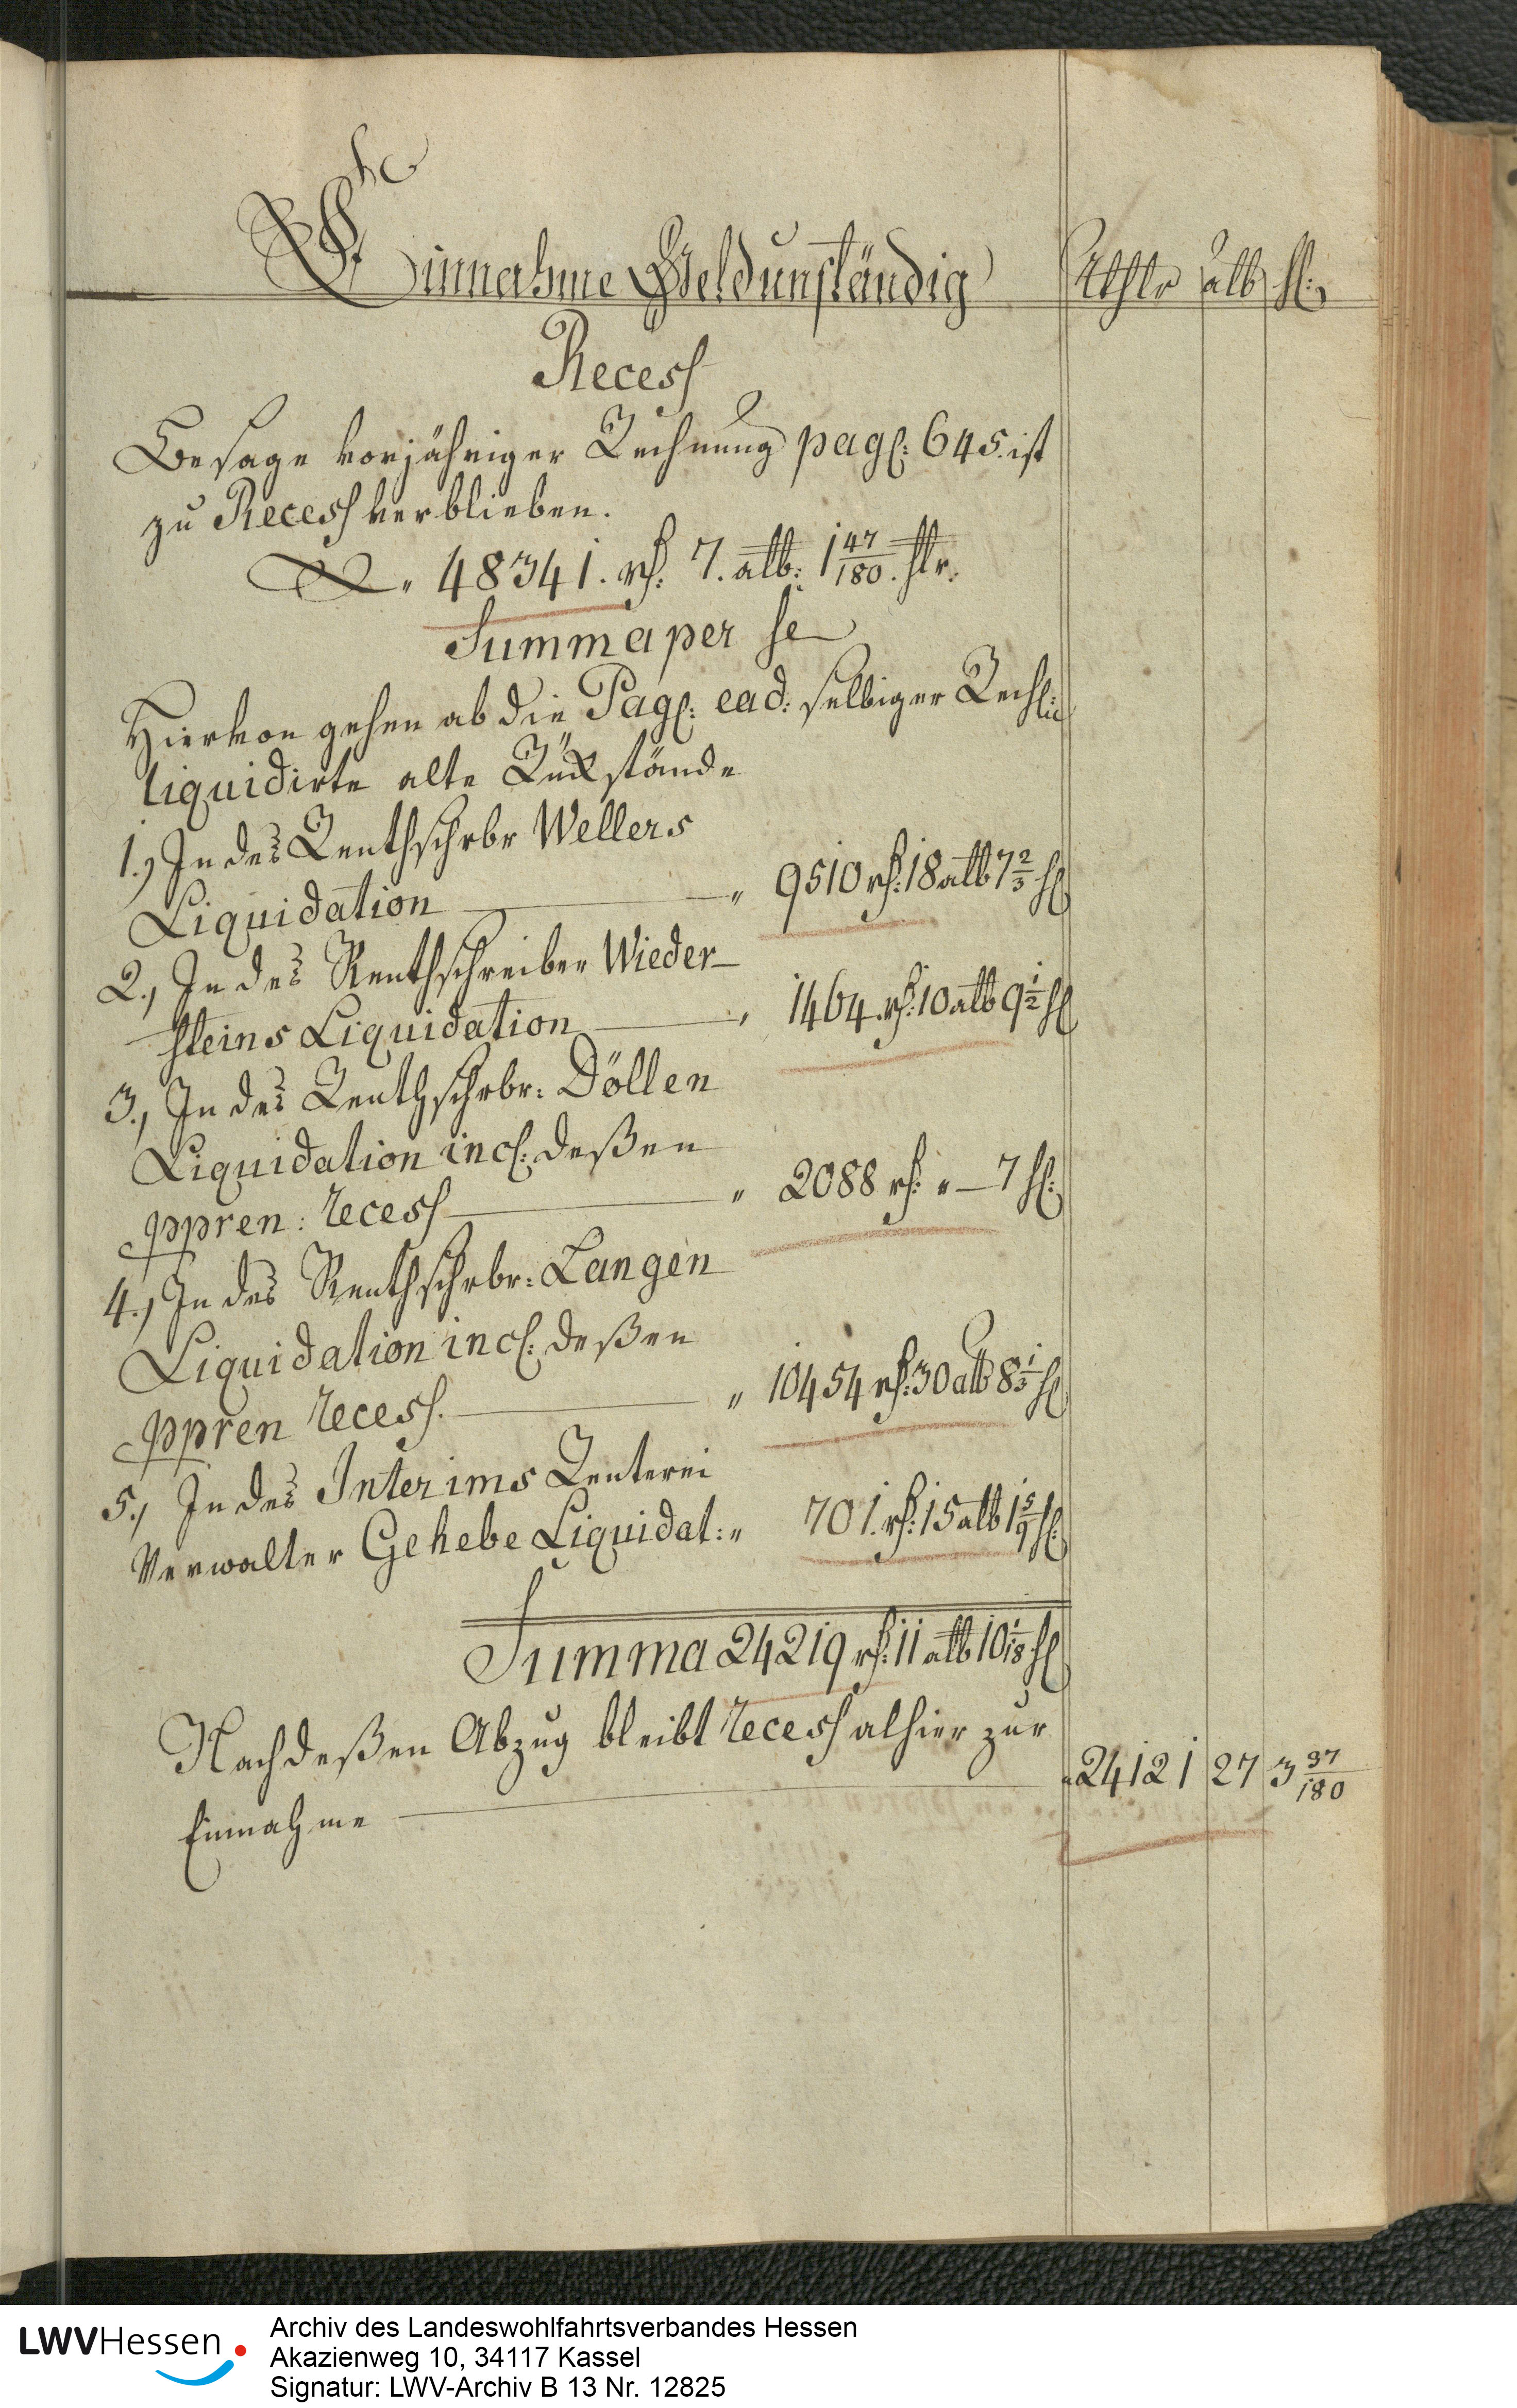 Einnahme Geld unständig Rthlr alb hl:
Recess
Besage vorjähriger Rechnung pag: 645. ist
zu Recess verblieben.
48341. rh: 7. alb: 1 47/180. hlr.
Summa per se
Hiervon gehen ab die Pag: ead: selbiger Rech:
liquidirte alte Rückstände
1.) In des Renthschrbr Wellers
Liquidation — " 9510 rh: 18 alb 7 2/3 hl
2., In des Renthschreiber Wieder-
steins Liquidation — " 1464. rh: 10 alb 9 1/2 hl
3., In des Renthschrbr: Döllen
Liquidation incl: deßen
ppren: recess — " 2088 rh: " — 7 hl:
4., In des Renthschrbr: Langen
Liquidation incl: deßen
ppren recess. — " 10454 rh: 30 alb 8 1/3 hl
5., In des Interims Renterei
Verwalter Gehebe Liquidat: " 701. rh: 15 alb 1 5/9 hl:
Summa 24219 rh: 11 alb 10 1/18 hl
Nach deßen Abzug bleibt recess alhier zur
Einnahme — " 24121 27 3 37/180
LWVHessen
Archiv des Landeswohlfahrtsverbandes Hessen
Akazienweg 10, 34117 Kassel
Signatur: LWV-Archiv B 13 Nr. 12825